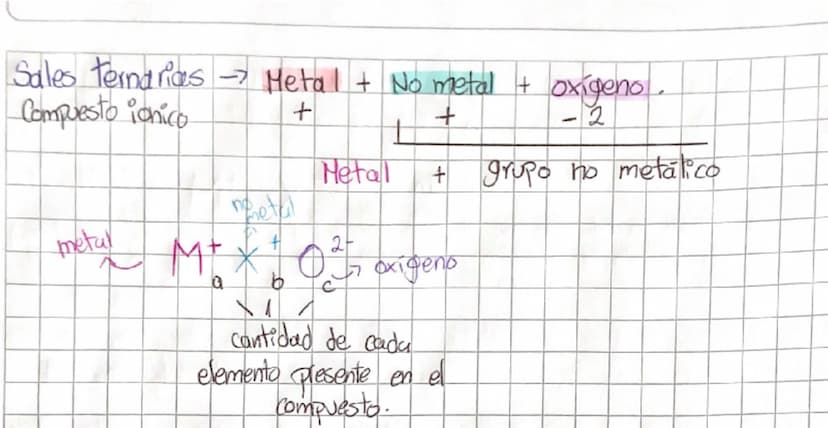 Sales ternarias → Metal + No metal + oxígeno.
Compuesto iónico + + - 2
Metal + grupo no metálico
no metal
metal M⁺a X⁺b O²⁻c → oxígeno
cantidad de cada
elemento presente en el
compuesto.